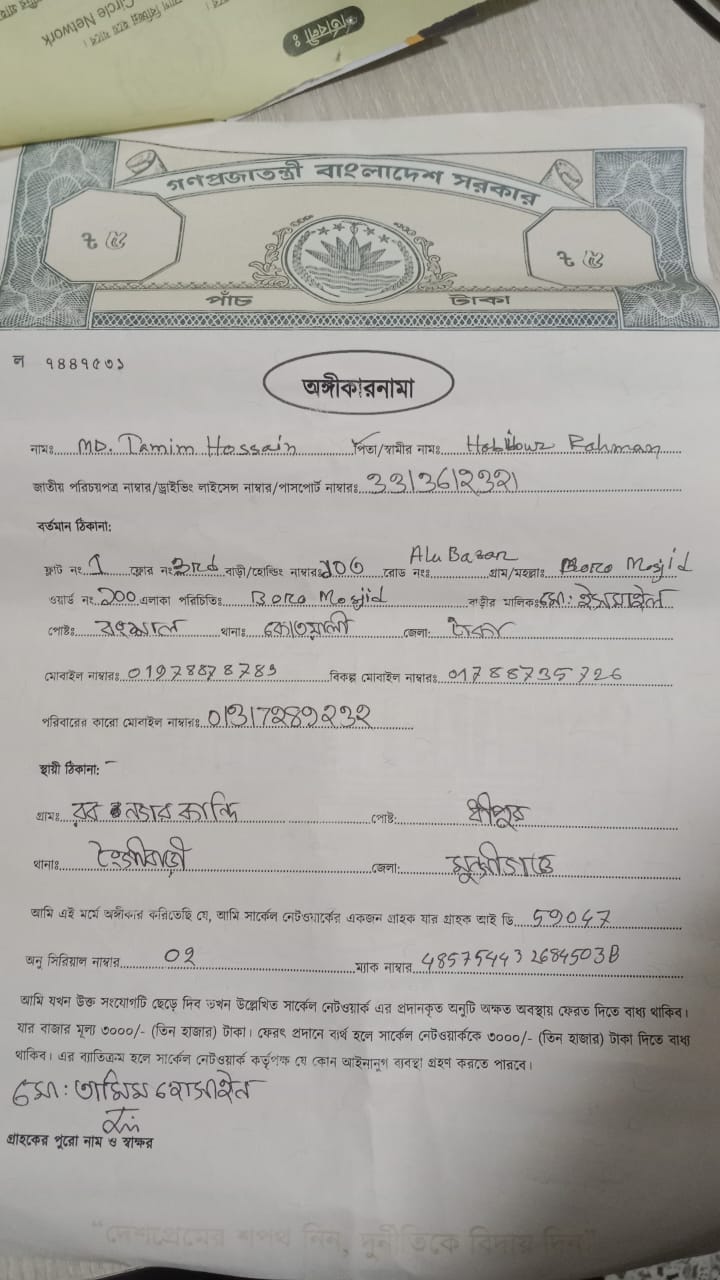 Circle Network
গণপ্রজাতন্ত্রী বাংলাদেশ সরকার
৳ ৫ ৳ ৫
পাঁচ টাকা
ল ৭৪৪৭৫৩১
অঙ্গীকারনামা
নামঃ MD. Tamim Hossain পিতা/স্বামীর নামঃ Habibur Rahman
জাতীয় পরিচয়পত্র নাম্বার/ড্রাইভিং লাইসেন্স নাম্বার/পাসপোর্ট নাম্বারঃ 3313612321
বর্তমান ঠিকানা:
ফ্লাট নং 1 ফ্লোর নং 3rd বাড়ী/হোল্ডিং নাম্বারঃ 106 রোড নংঃ Alu Bazar গ্রাম/মহল্লাঃ Boro Mosjid
ওয়ার্ড নং 200 এলাকা পরিচিতিঃ Boro Mosjid বাড়ীর মালিকঃ মো: ইসমাইল
পোষ্টঃ বংশাল থানাঃ কোতয়ালী জেলা: ঢাকা
মোবাইল নাম্বারঃ 01978878789 বিকল্প মোবাইল নাম্বারঃ 01788735726
পরিবারের কারো মোবাইল নাম্বারঃ 01317289232
স্থায়ী ঠিকানা:
গ্রামঃ কান্দি পোষ্ট: শ্রীপুর
থানাঃ টংগীবাড়ী জেলা: মুন্সীগঞ্জ
আমি এই মর্মে অঙ্গীকার করিতেছি যে, আমি সার্কেল নেটওয়ার্কের একজন গ্রাহক যার গ্রাহক আই ডি 59047
অনু সিরিয়াল নাম্বার 02 ম্যাক নাম্বার 485754432684503B
আমি যখন উক্ত সংযোগটি ছেড়ে দিব তখন উল্লেখিত সার্কেল নেটওয়ার্ক এর প্রদানকৃত অনুটি অক্ষত অবস্থায় ফেরত দিতে বাধ্য থাকিব।
যার বাজার মূল্য ৩০০০/- (তিন হাজার) টাকা। ফেরৎ প্রদানে ব্যর্থ হলে সার্কেল নেটওয়ার্ককে ৩০০০/- (তিন হাজার) টাকা দিতে বাধ্য
থাকিব। এর ব্যতিক্রম হলে সার্কেল নেটওয়ার্ক কর্তৃপক্ষ যে কোন আইনানুগ ব্যবস্থা গ্রহণ করতে পারবে।
মো: তামিম হোসাইন
গ্রাহকের পুরো নাম ও স্বাক্ষর
"দেশপ্রেমের শপথ নিন, দুর্নীতিকে বিদায় দিন"